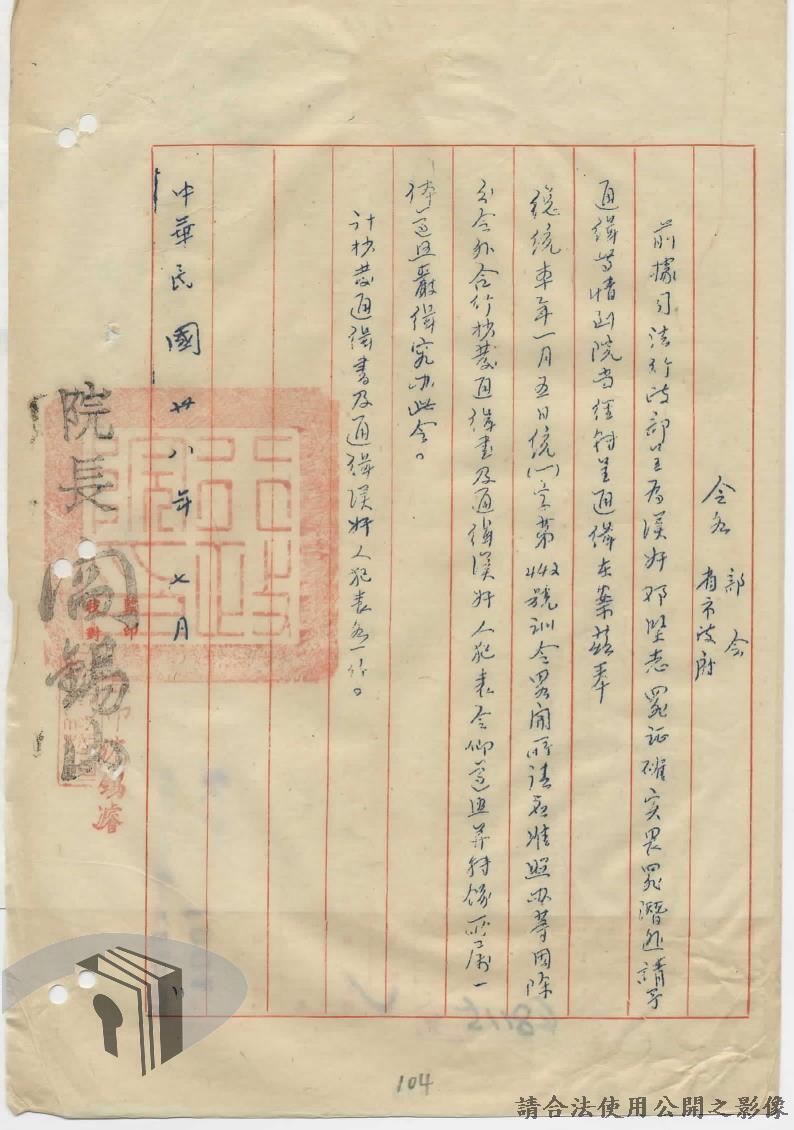 令各 部會
省市政府
前據司法行政部呈為漢奸鄧堅志罪証確實畏罪潛逃請予
通緝等情到院當經轉呈通緝在案茲奉
總統本年一月五日統(一)字第442號訓令畧開所請應准照办等因除
分令外合行抄發通緝書及通緝漢奸人犯表令仰遵照並轉飭所屬一
体遵照嚴緝究办此令。
計抄發通緝書及通緝漢奸人犯表各一份。
中華民國卅八年七月
院長閻錫山
監印
校對
104
請合法使用公開之影像